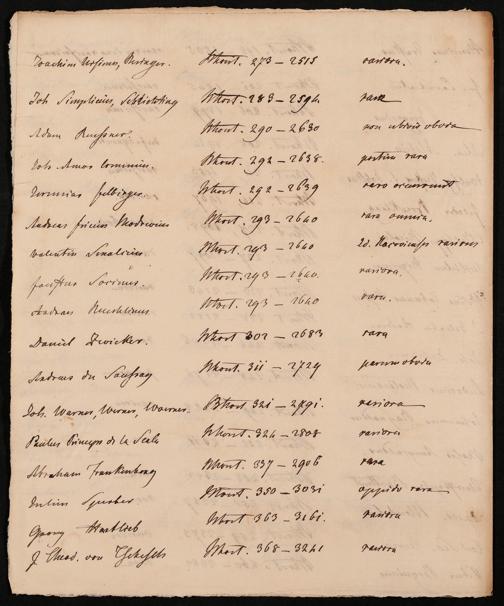 Joachim Ursinus, Beringer. Whort. 273 – 2515 rariora.
Joh Simplicius, Schlichting Whort. 283 – 2594 rara
Adam Ruessner. Whort. 290 – 2630 non ubivis obvia
Joh. Amos Comenius. Whort. 292 – 2638. partim rara
Jeremias felbinger. Whort. 292 – 2639 raro occurrunt
Andreas fricius Modrevius Whort. 293 – 2640 rara omnia.
Valentin Smalcius Whort. 293 – 2640 Ed. Racoviensis rariores
faustus Socinus Whort. 293 – 2640. rariora.
Whort. 293 – 2640 rara.
Daniel Zwicker. Whort 302 – 2683 rara
Andreas du Saussay Whort. 311 – 2729 parum obvia
Joh. Warner, Werner, Waerner. Whort 321 – 2791. rariora
Paulus Princeps de la Scala Whort. 324 – 2808 rariora
Abraham Frankenberg Whort. 337 – 2906 rara
Julius Sperber Whort. 350 – 3031 oppido rara
Georg Hartlieb Whort. 363 – 3161. rariora
J. Chead. von Whort. 368 – 3241 rariora